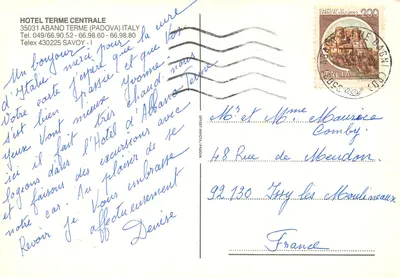 HOTEL TERME CENTRALE
35031 ABANO TERME (PADOVA) ITALY
Tel. 049/66.90.52 - 66.98.60 - 66.98.80
Telex 430225 SAVOY - I
Un bonjour
d'Italie merci pour la
votre carte j'espère que la cure
s'est bien passée et que vos
yeux vont mieux Yvonne
ici il fait très chaud nous
logeons dans l'Hotel d'Albano Terme
et faisons des excursions avec
notre car. Au plaisir de se
Revoir je vous embrasse
affectueusement
Denise
200
ITALIA
Mr et Mme Maurice
Comby
48 Rue de Meudon
92 130 Issy les Moulineaux
France